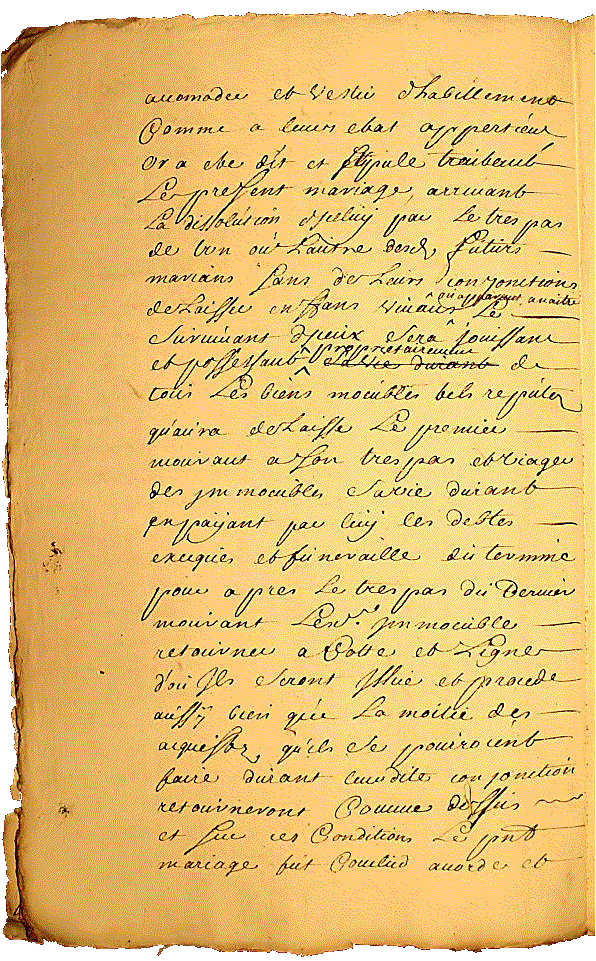 accomodee et vestie d'habillement
Comme a leurs etat appertient
Or a ete dit et stipule traitant
Le present mariage, arrivant
La dissolution d'iceluy par Le trespas
de l'un où L'autre desd. futurs
marians sans de Leurs conjonctions
delaisse enffans vivans ou apparant a naitre Le
survivant d'yeux sera jouissant
et possessant proprietairement sa vie durant de
tous Les biens meubles tels reputez
qu'aura delaisse Le premier
mourant a son trespas et viager
des immeubles sa vie durant
en païant par luy les debtes
exeques et funeraille du termine
pour apres Le trespas du Dernier
mourant Lesd. immeuble
retourner a Cotte et Ligne
d'où Ils seront issue et procede
aussy bien que La moitie des
acquestes qu'ils se pouroient
faire durant leurdite conjonction
retourneront Comme dessus
et sur ces Conditions Le pnt
mariage fut Conclud accorde et